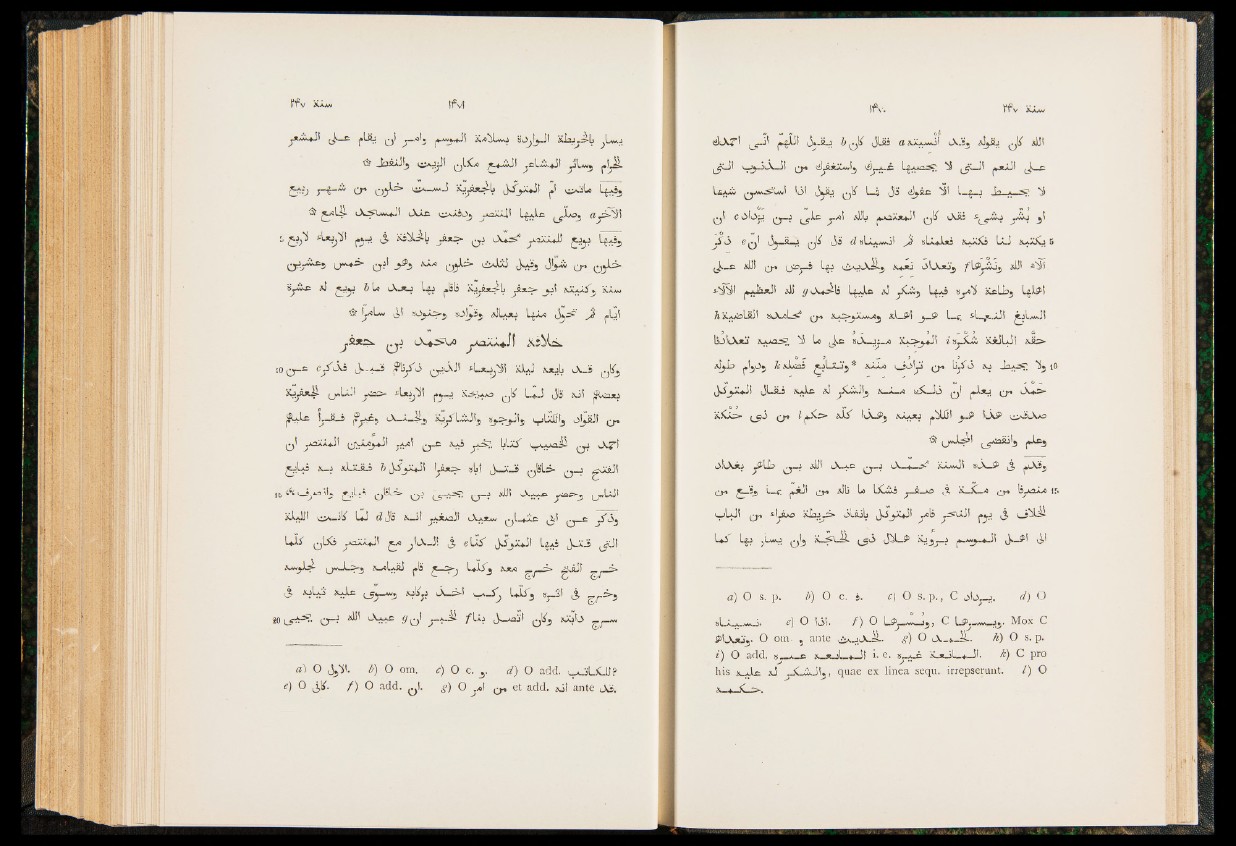 سنة ٢٤٧ ١٤٧٠
الله كان يقوله وقد أُنسيتَه a فقال كان b يقول اللّهمّ انّى احمدك
على النعم التى لا يحصيها غيرك واستغفرك من الذنوب التى
لا يحيط بها الّا عفوك قال فما كان يقول اذا استحسن شيئا
او بُشّر بشىء فقد كان المعتصم بالله امر علىّ بن يَزْداد c ان
5 يكتبه لنا فكتبه فعلمناه ثم انسيناه d قال كان يقول انّ e ذِكْرَ
آلاء الله ونَشْرَها f وتَعْدادَ نِعَمه والحديث بها فرض من الله على
اهلها وطاعة لامره فيها وشكر له عليها فالحمد g لله العظيم الآلاء
السابغ النعماء بما هو اهله ومستوجبه من محامده القاضية h
حقّه البالغة شُكْرَه i الموجبة مزيدَه على ما لا يحصيه تعدادُنا
10 ولا يحيط به ذِكْرنا من ترادُف مِنَنه *وتتابُع فَضْله k ودوام طوله
حَمْدَ من يعلم انّ ذلك منه والشكر له عليه فقال المتوكّل
صدقت هذا هو الكلام بعينه وهذا كلّه حكم l من ذى حُنْكة
وعلم وانقضى المجلس
وقدم فى هذه السنة محمّد بن عبد الله بن طاهر بغداد
15 منصرفا من مكّة فى صفر فشكا ما ناله من الغمّ بما وقع من
الخلاف فى يوم النحر فامر المتوكّل بانفاذ خريطة صفراء من الباب
الى اهل الموسم برؤية هلال ذى الحجّة وان يسار بها كما
a) O s. p. b) O c. و. c) O s. p., C d) O
e) O اذا. f) O C Mox C
O om. و ante والحديث. g) O الحمد. h) O s. p.
i) O add. i. e. k) C pro
his والشكر له عليه, quae ex linea sequ. irrepserunt. l) O
حكمه.
سنة ٢٤٧ ١٤٧١
يسار بالخريطة الواردة بسلامة الموسم وامر ان يقام على المشعر
الحرام وسائر المشاعر الشمع مكان الزيت والنفط
وفيها ماتت امّ المتوكّل بالجعفريّة لستّ خلون من شهر ربيع
الآخر a وصلّى عليها المنتصر ودفنت عند المسجد الجامع
5 وفيها بويع للمنتصر محمّد بن جعفر بالخلافة فى يوم الاربعاء لاربع
خلون من شوّال وقيل لثلث خلون منه وهو ابن خمس وعشرين
سنة وكنيته ابو جعفر بالجعفريّة فاقام بها بعد ما b بويع له عشرة
ايّام ثم تحوّل منها بعياله وقوّاده وجنوده الى سامرّا
خلافة المنتصر محمد بن جعفر
10 وكان قد بايعه ليلة الاربعاء الذين ذكرناهم قبل فذكر c عن
بعضهم انه قال لما كان صبيحة يوم الاربعاء حضر الناس الجعفريّة
من القوّاد والكُتّاب والوجوه والشاكريّة والجند وغيرهم فقرأ عليهم
احمد بن الخصيب كتابا يخبر فيه عن امير المؤمنين المنتصر ان
الفتح بن خاقان قتل اباه جعفرا المتوكّل b فقتله به فبايع
15 الناس وحضر عبيد الله بن يحيى بن خاقان فبايع وانصرف
وذكر عن ابى عثمان سعيد الصغير انه قال d لمّا كانت الليلة
التى قتل فيها المتوكّل كنّا e فى الدار مع المنتصر فكان كلما
خرج الفتح خرج معه وكلما رجع قام لقيامه وجلس لجلوسه
وخرج فى اثره وكلما ركب اخذ بركابه وسوّى عليه ثيابه فى
20 سرج دابّته وكان اتّصل بنا f الخبر ان g عبيد الله بن يحيى
a) O الاول. b) O om. c) O c. و. d) O add. الكاتب?
e) O كانى. f) O add. ان. g) O من امر et add. انه ante قد.